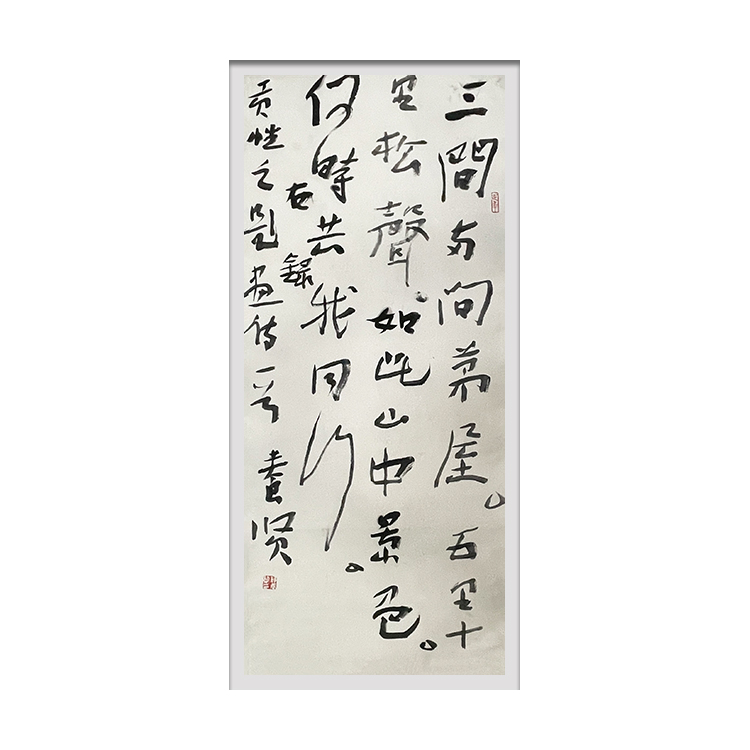 三間两間茅屋。五里十
里松聲。如此山中景色。
何時共我同行。
右錄
贡性之题画诗一首 贤